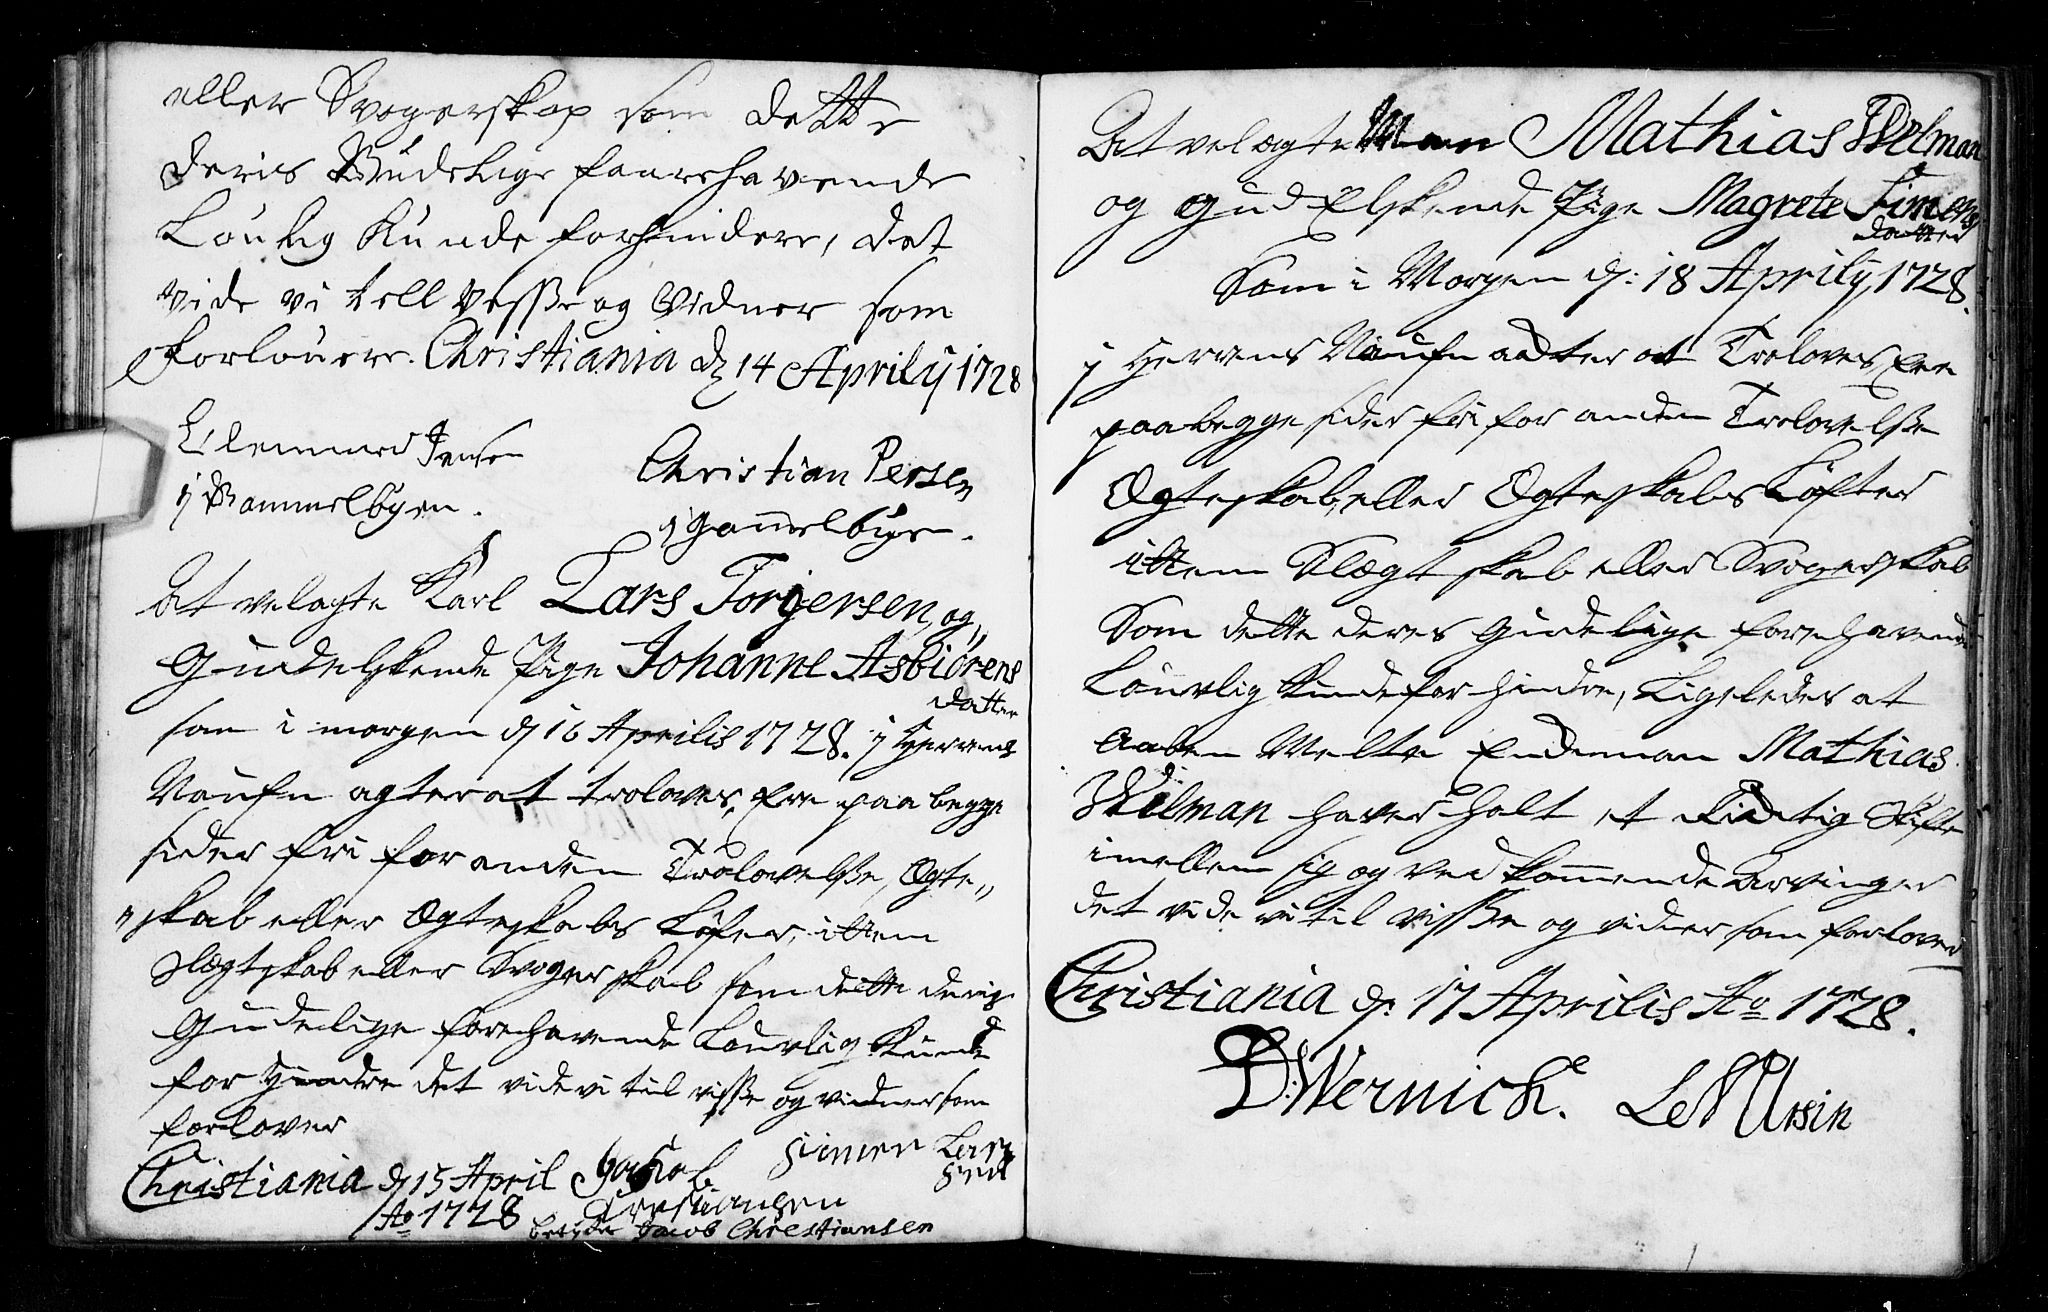 eller Svogerskap som dette
deris Gudelige foarehavende
Loulig Kunde forhindere, det
vide vi till visse og Vidner som
forlovere. Christiania d 14 Aprily 1728
Jensen
j Gammelbyen.
Christian Persen
j Gamelbyen.
At velagte Karl Lars Torgersen, og,
Gudelskende Pige Johanne Asbiørens
datter
som i morgen d 16 Aprilis 1728. j Herrens
Naufn agter at troloves, Ere paa begge
sider fri for anden Trolovelse, Ægte„
„skab eller Ægteskabs Løfter, ittem
Slegtskab eller Svogerskab som dette deris
Gudelige forehavende Louvlig Kunde
for Hindre det vide vi til visse og vidner som
forlover
Christiania d 15 April
Ao 1728
Jacob
Crestiansen
Simen Lar
sen
Jacob Christiansen
At velægte Man Mathias Welman
og gud Elskende Pige Magrete Simens
datter
Som i Morgen d: 18 Aprily 1728.
j Herrens Naufn acter at Troloves, Ere
paa begge sider fri for anden Trolovelse
Ægteskab, eller Ægteskabs Løfter
ittem Slegtskab eller Svogerskab
Som dette deres Gudelige forehavende
Louvlig Kunde for hindre, Ligeledes at
Enckeman Mathias
Welman haver holt et Rictig Skifte
imellem sig og Ved kommende Arvinger
det vide vi til visse og vidner som forlover
Christiania d: 17 Aprilis Ao 1728.
D: Wernich. LeNUrsin